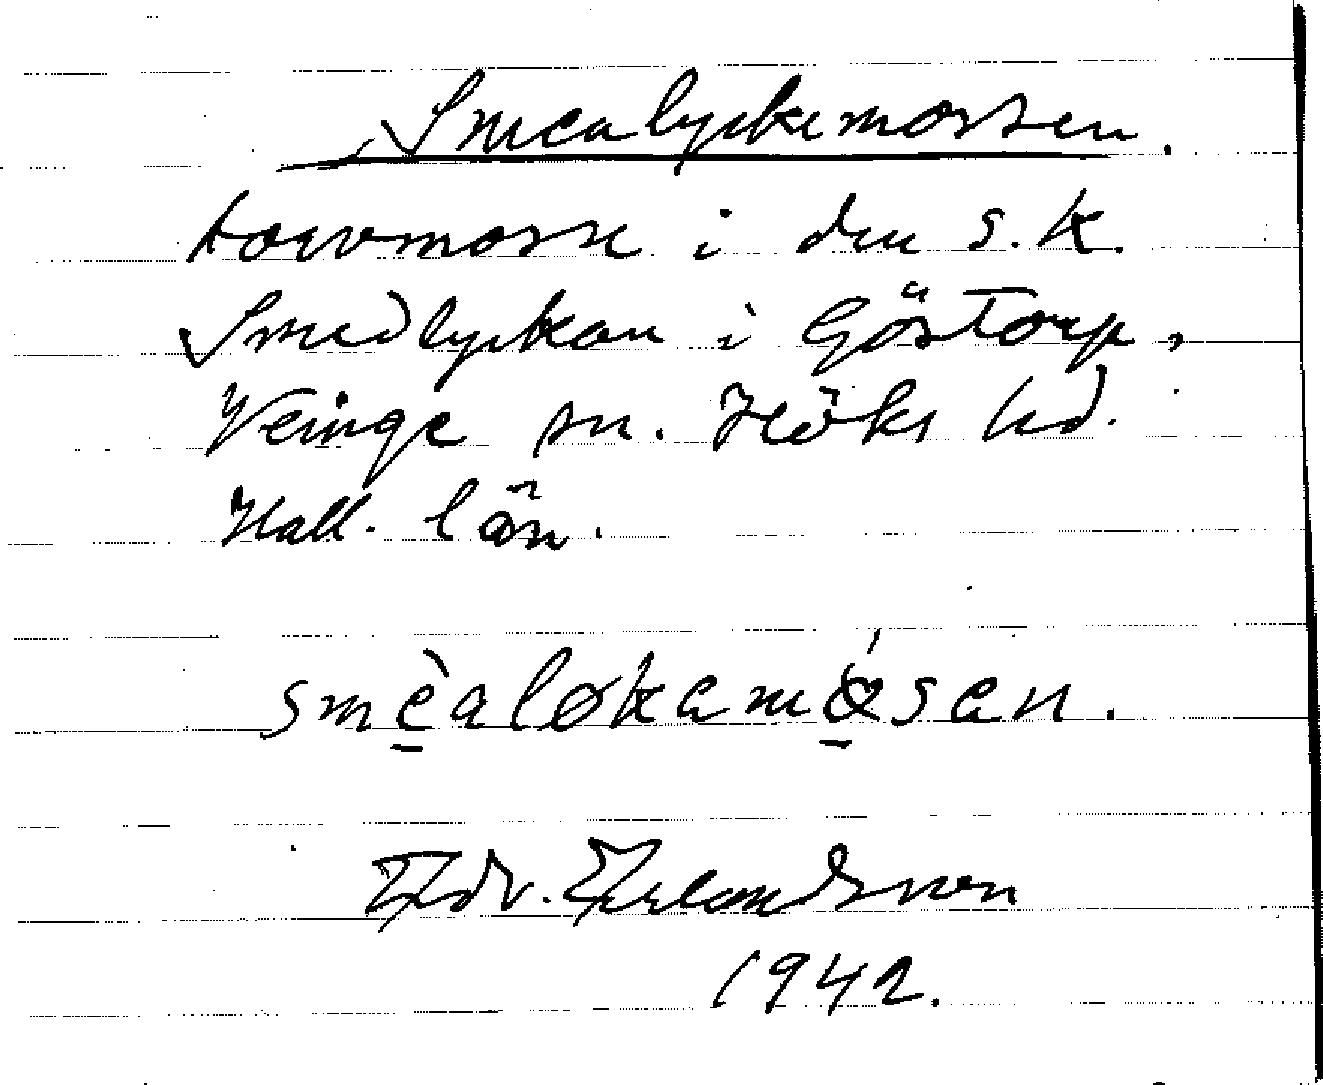 Smealyckemossen.
torvmosse i den s.k.
Smedlyckan i Göstorp,
Veinge sn. Höks hd.
Hall. län.
smèaløkamósen.
Edv. Erlandsson
1942.